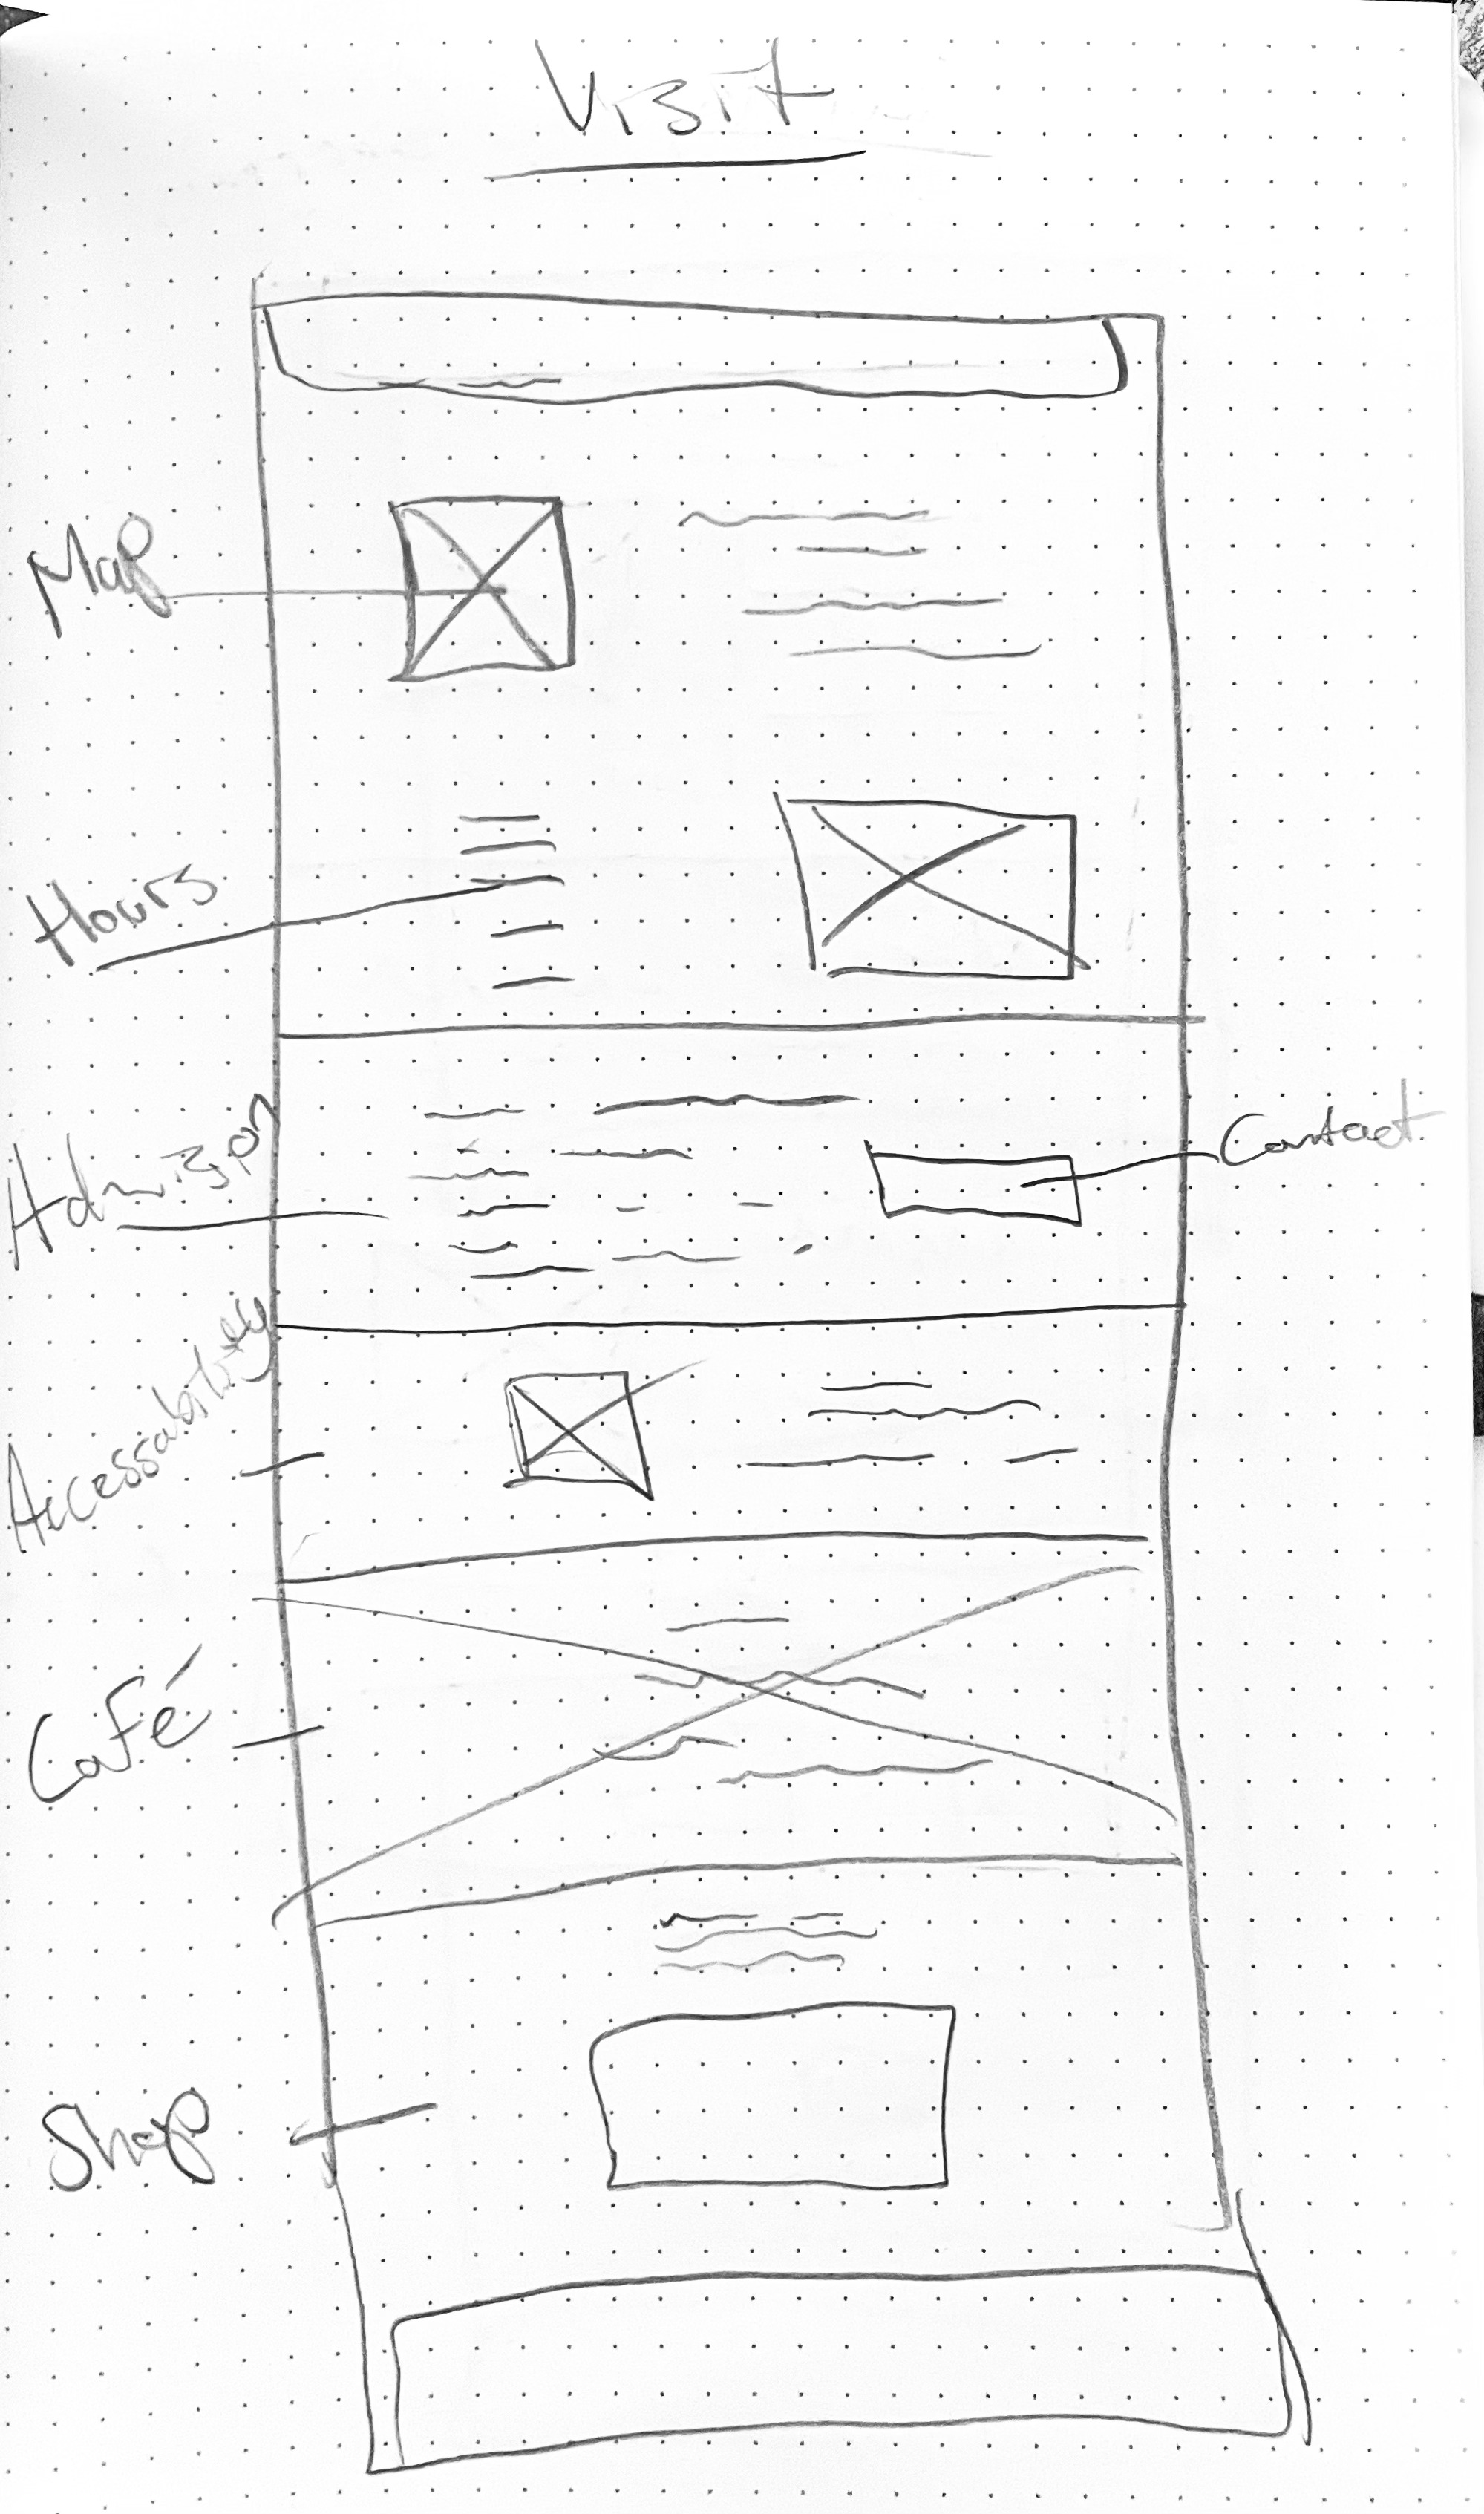 Visit
Map
Hours
Admission
Contact
Accessability
Café
Shop